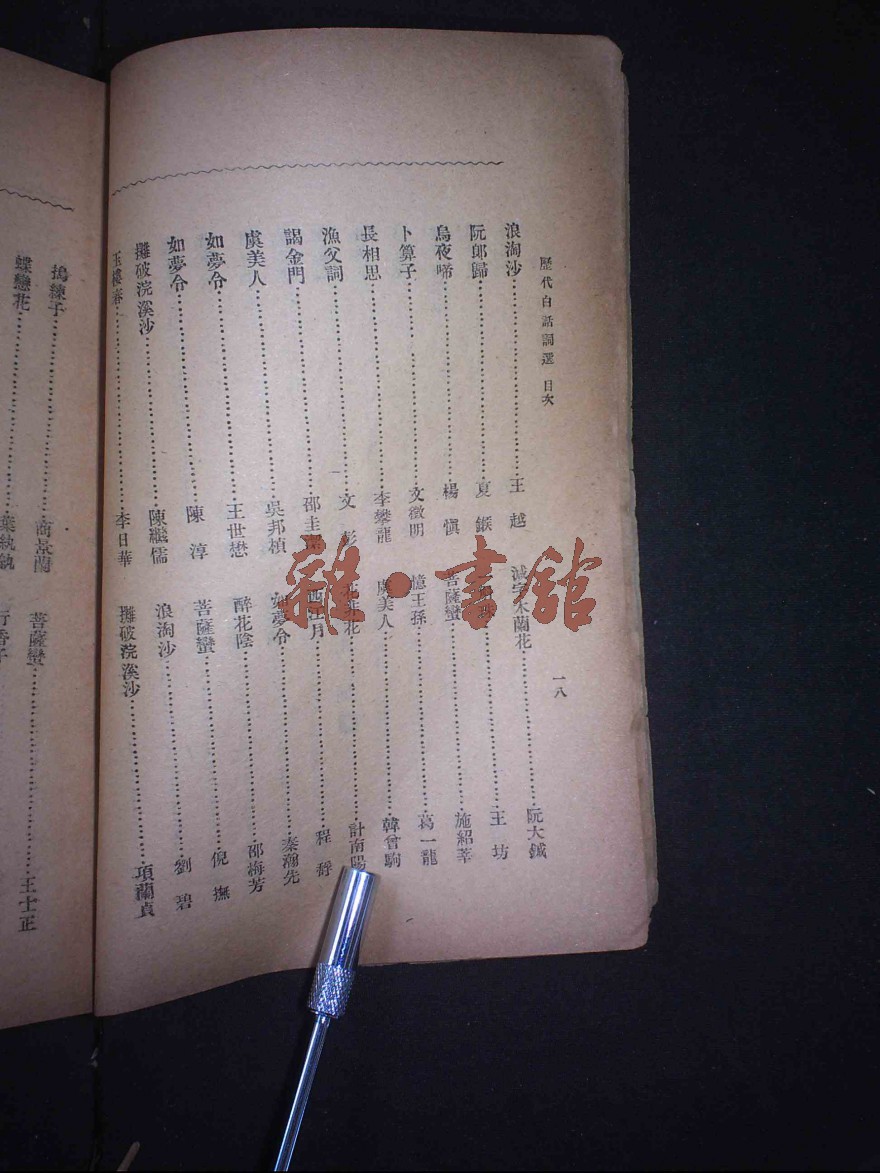 歷代白話詞選 目次
一八
浪淘沙 王越
阮郎歸 夏鍭
烏夜啼 楊愼
卜算子 文徵明
長相思 李攀龍
漁父詞 文彭
謁金門 邵圭潔
虞美人 吳邦楨
如夢令 王世懋
如夢令 陳淳
攤破浣溪沙 陳繼儒
玉樓春 李日華
減字木蘭花 阮大鋮
王坊
菩薩蠻 施紹莘
憶王孫 葛一龍
虞美人 韓曾駒
花 計南陽
西江月 程
如夢令 秦瀚先
醉花陰 邵梅芳
菩薩蠻 倪撫
浪淘沙 劉碧
攤破浣溪沙 項蘭貞
搗練子 商景蘭
蝶戀花 葉紈紈
菩薩蠻 王士正
行香子
雜·書館